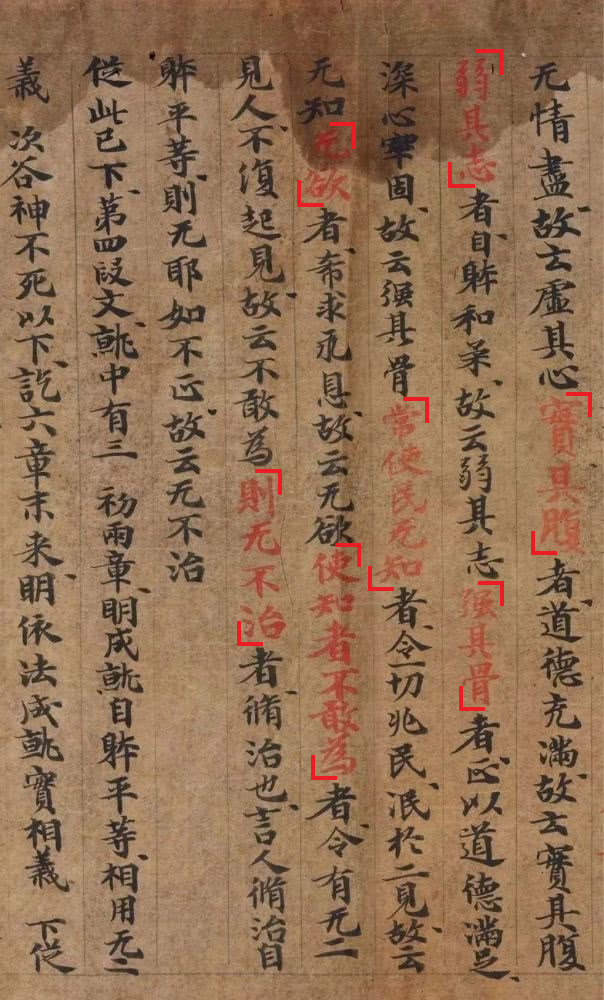 无情盡故云虛其心實其腹者道德充滿故云實其腹
弱其志者自躰和柔故云弱其志强其骨者正以道德滿足
深心牢固故云强其骨常使民无知者令一切兆民泯於二見故云
无知无欲者希求永息故云无欲使知者不敢為者令有无二
見人不復起見故云不敢為則无不治者脩治也言人脩治自
躰平等則无耶如不正故云无不治
從此已下第四段文就中有三 初兩章明成就自躰平等相用无二
義 次谷神不死以下訖六章末来明依法成就實相義 下從